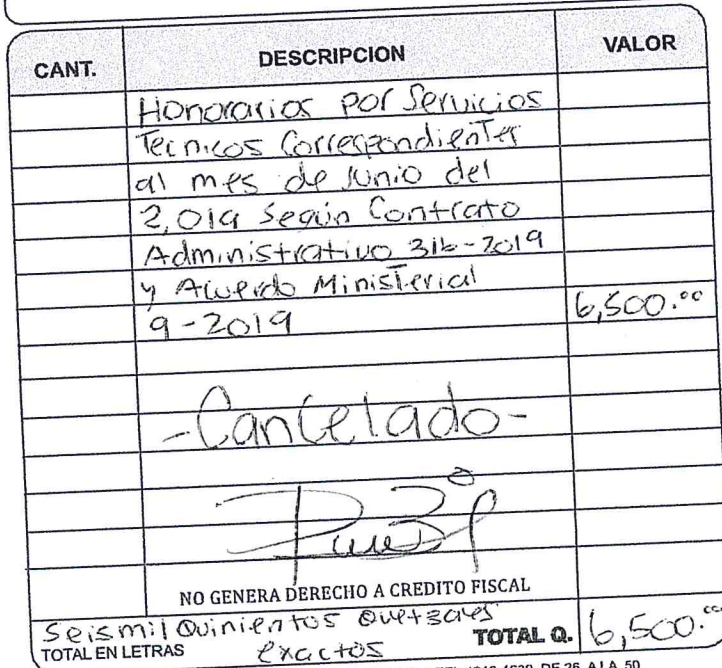 CANT. DESCRIPCION VALOR
Honorarios por Servicios
Tecnicos Correspondientes
al mes de Junio del
2,019 Según Contrato
Administrativo 316-2019
y Acuerdo Ministerial
9-2019 6,500.00
-Cancelado-
NO GENERA DERECHO A CREDITO FISCAL
Seis mil Quinientos Quetzales
TOTAL EN LETRAS exactos TOTAL Q. 6,500.00
DE 26 A LA 50